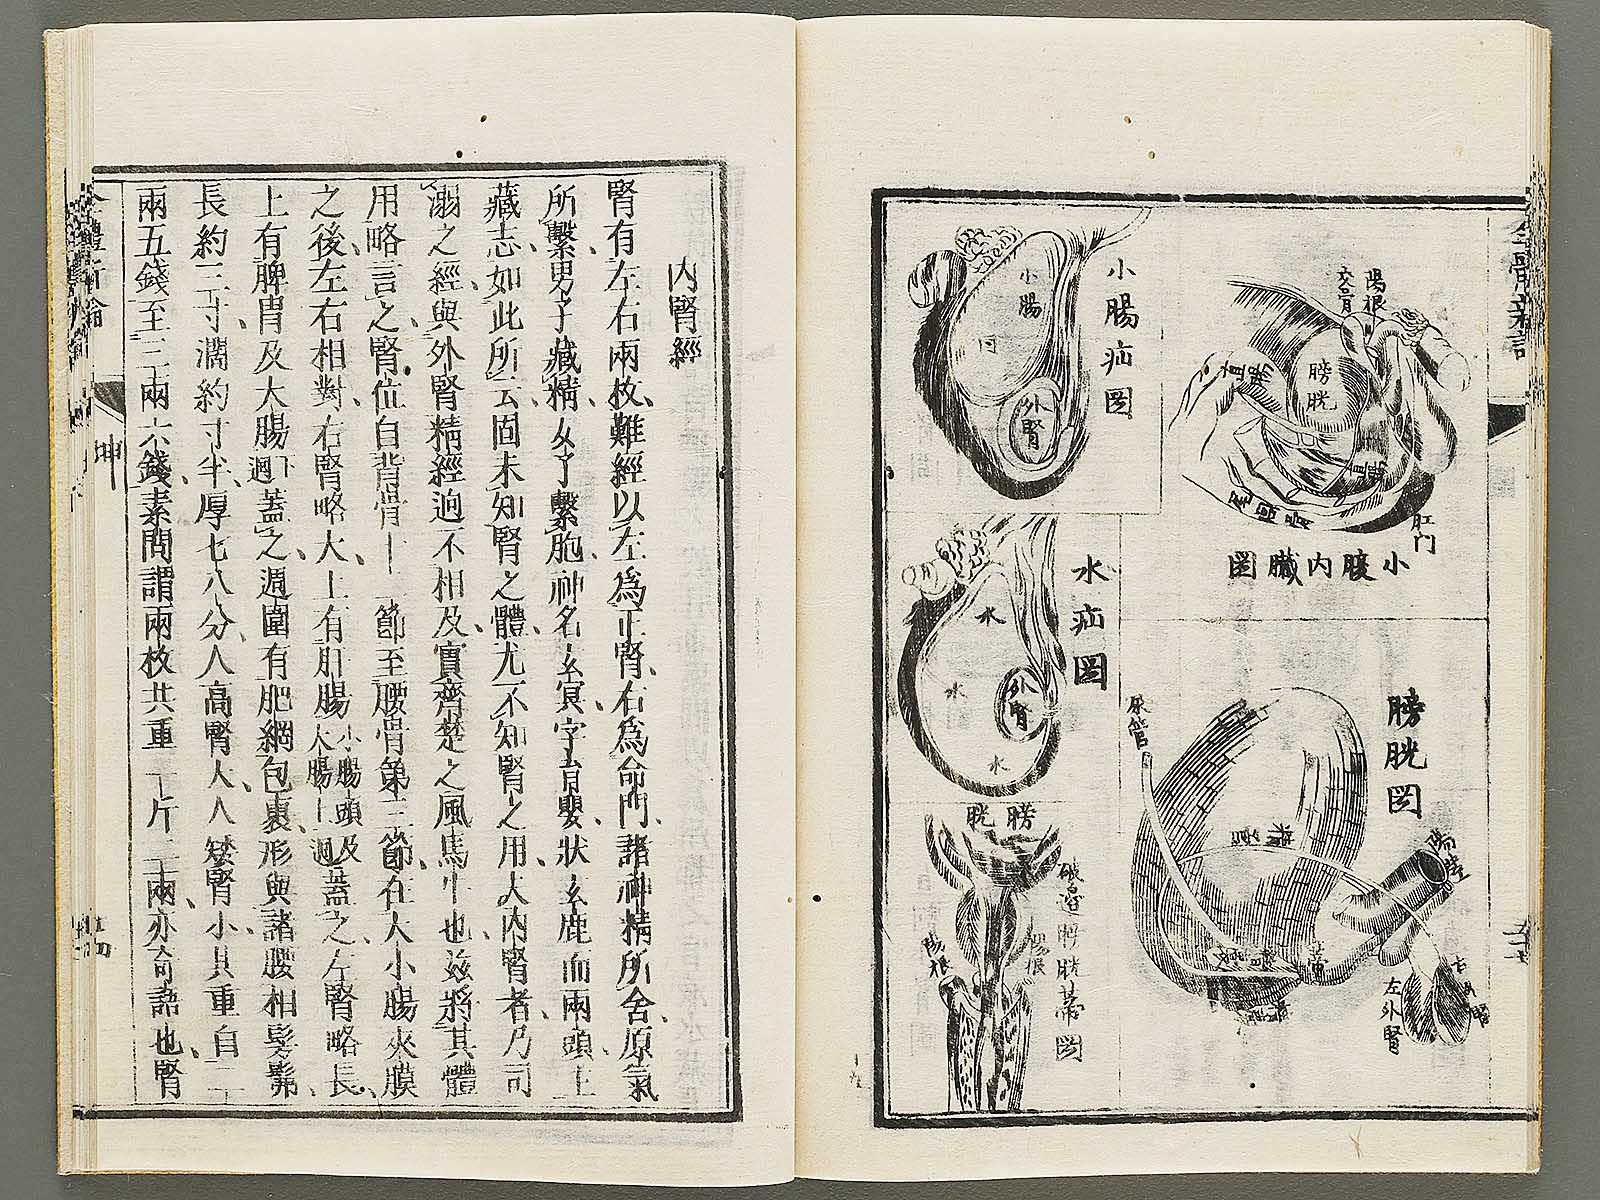 全體新論
陽根
交骨
膀胱
直腸
肛门
小腹内臟図
膀胱図
尿管
陽莖
左外腎
小腸疝図
小腸
外腎
水疝図
水
外腎
水
水
膀胱
破邊膀胱蒂図
陽根
陽根
内腎經
腎有左右兩枚、難經以左爲正腎、右爲命門、諸神精所舍、原氣
所繫、男子藏精、女子繫胞、神名玄冥、字育嬰、狀玄鹿而兩頭、主
藏志、如此所云、固未知腎之體、尤不知腎之用、夫内腎者、乃司
溺之經、與外腎精經迥不相及、實齊楚之風馬牛也、茲將其體
用略言之、腎位自背骨十一節至腰骨第三節、在大小腸夾膜
之後、左右相對、右腎略大、上有肝腸小腸頭及大腸上迴蓋之、左腎略長、
上有脾胃及大腸下迴蓋之、週圍有肥網包裹、形與諸腰相髣髴、
長約三寸、濶約寸半、厚七八分、人高腎大、人矮腎小、其重自二
兩五錢至三兩六錢、素問謂兩枚共重一斤二兩、亦奇語也、腎
全體新論
坤